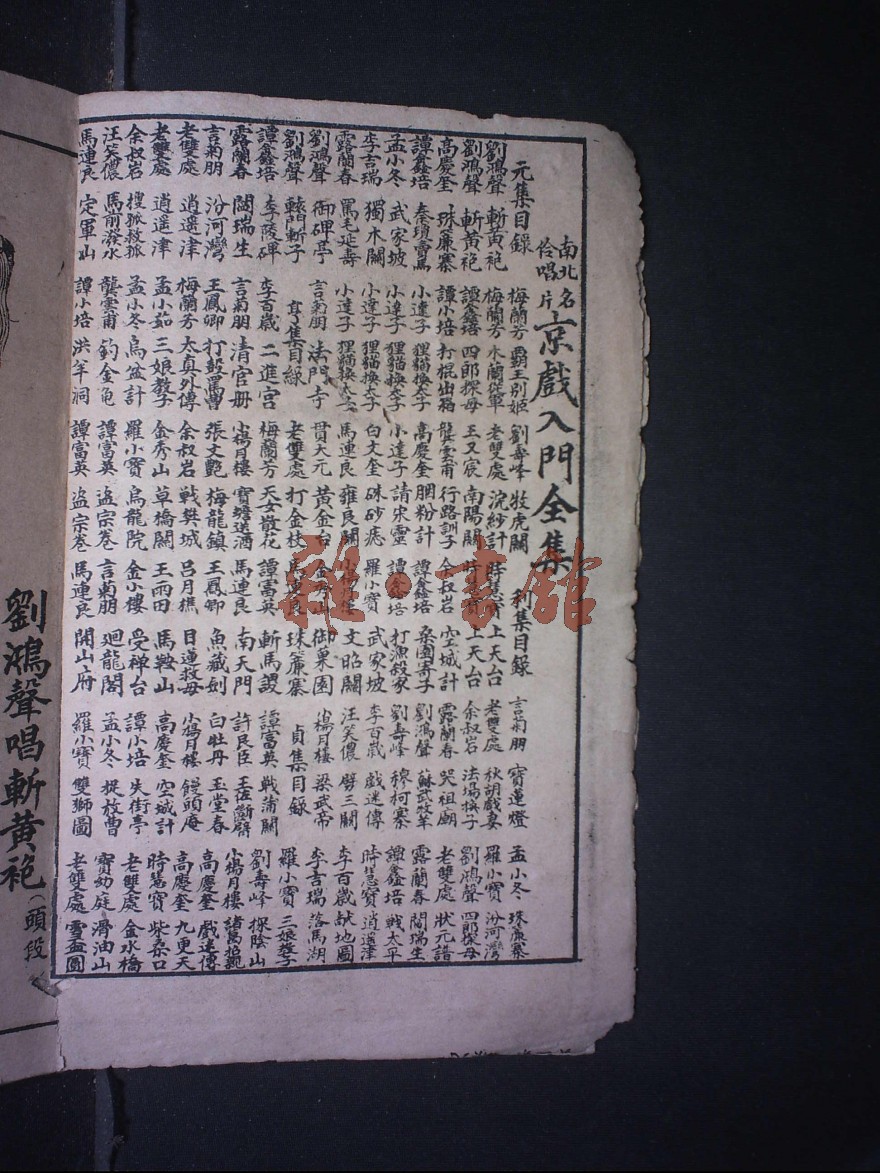 南北名伶唱片京戲入門全集
元集目錄
劉鴻聲 斬黃袍
劉鴻聲 斬黃袍
高慶奎 珠簾寨
譚鑫培 秦瓊賣馬
孟小冬 武家坡
李吉瑞 獨木關
露蘭春 罵毛延壽
劉鴻聲 御碑亭
劉鴻聲 轅門斬子
譚鑫培 李陵碑
露蘭春 閻瑞生
言菊朋 汾河灣
老雙處 逍遥津
老雙處 逍遥津
余叔岩 搜孤救孤
汪笑儂 馬前潑水
馬連良 定軍山
梅蘭芳 霸王別姬
梅蘭芳 木蘭從軍
譚鑫培 四郎探母
譚小培 打棍出箱
小達子 狸貓換太子
小達子 狸貓換太子
小達子 狸貓換太子
小達子 狸貓換太子
言菊朋 法門寺
亨集目錄
李百歲 二進宮
言菊朋 清官册
王鳳卿 打鼓罵曹
梅蘭芳 太真外傳
孟小茹 三娘教子
孟小冬 烏盆計
龔雲甫 釣金龜
譚小培 洪羊洞
劉壽峰 牧虎關
老雙處 浣紗計
王又宸 南陽關
龔雲甫 行路訓子
高慶奎 胭粉計
小達子 請宋靈
白文奎 硃砂痣
馬連良 雍良關
貫大元 黃金台
老雙處 打金枝
梅蘭芳 天女散花
小楊月樓 寶蟾送酒
張文艷 梅龍鎮
余叔岩 戰樊城
金秀山 草橋關
羅小寶 烏龍院
譚富英 盗宗卷
譚富英 盗宗卷
利集目錄
時慧寶 上天台
時慧寶 上天台
余叔岩 空城計
譚鑫培 桑園寄子
譚鑫培 打漁殺家
羅小寶 武家坡
小楊月樓 文昭關
金秀山 御菓園
馬連良 珠簾寨
譚富英 斬馬謖
馬連良 南天門
王鳳卿 魚藏劍
呂月樵 目蓮救母
王雨田 馬鞍山
金小樓 受禪台
言菊朋 廻龍閣
馬連良 開山府
言菊朋 寶蓮燈
老雙處 秋胡戲妻
余叔岩 法場換子
露蘭春 哭祖廟
劉鴻聲 蘇武牧羊
劉壽峰 穆柯寨
李百歲 戲迷傳
汪笑儂 劈三關
小楊月樓 梁武帝
貞集目錄
譚富英 戰蒲關
許良臣 王佐斷臂
白牡丹 玉堂春
小楊月樓 饅頭庵
高慶奎 空城計
譚小培 失街亭
孟小冬 捉放曹
羅小寶 雙獅圖
孟小冬 珠簾寨
羅小寶 汾河灣
劉鴻聲 四郎探母
老雙處 狀元譜
露蘭春 閻瑞生
譚鑫培 戰太平
時慧寶 逍遥津
李百歲 献地圖
李吉瑞 落馬湖
羅小寶 三娘教子
劉壽峰 探陰山
小楊月樓 諸葛招親
高慶奎 戲迷傳
高慶奎 九更天
時慧寶 柴桑口
老雙處 金水橋
寶幼庭 滑油山
老雙處 雪盃圓
劉鴻聲唱斬黃袍（頭段）
雅·書館